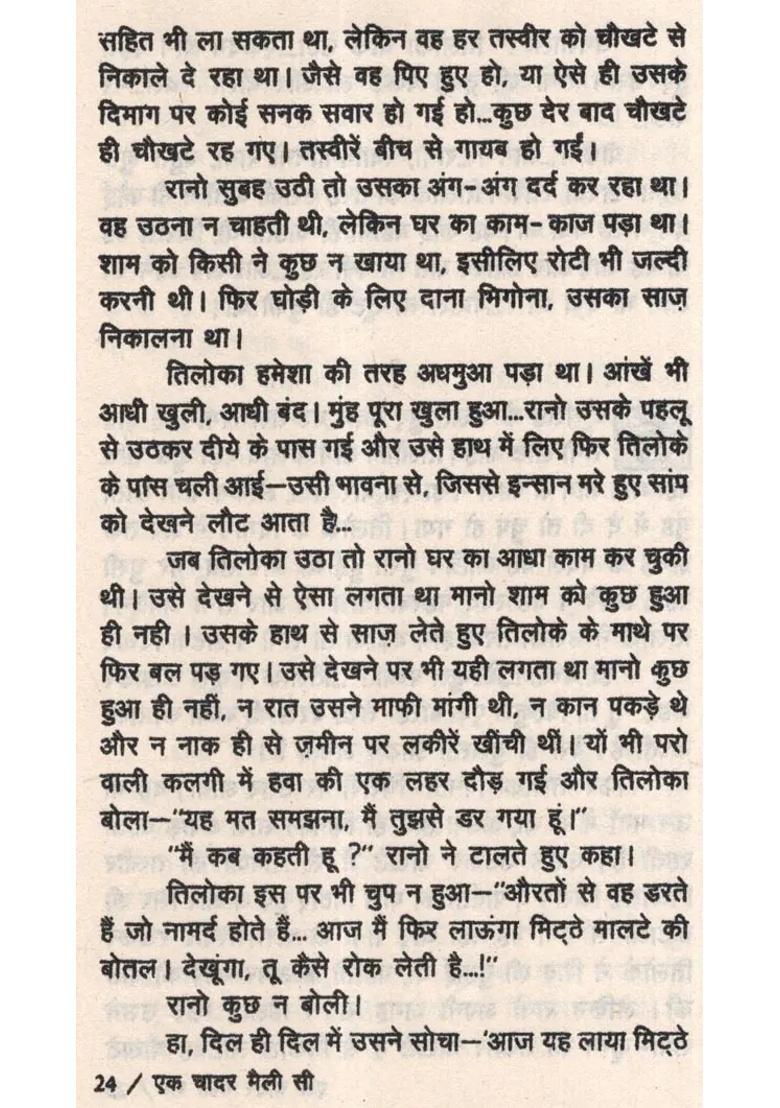 सहित भी ला सकता था, लेकिन वह हर तस्वीर को चौखटे से
निकाले दे रहा था। जैसे वह पिए हुए हो, या ऐसे ही उसके
दिमाग पर कोई सनक सवार हो गई हो...कुछ देर बाद चौखटे
ही चौखटे रह गए। तस्वीरें बीच से गायब हो गईं।
रानो सुबह उठी तो उसका अंग-अंग दर्द कर रहा था।
वह उठना न चाहती थी, लेकिन घर का काम-काज पड़ा था।
शाम को किसी ने कुछ न खाया था, इसीलिए रोटी भी जल्दी
करनी थी। फिर घोड़ी के लिए दाना भिगोना, उसका साज़
निकालना था।
तिलोका हमेशा की तरह अधमुआ पड़ा था। आंखें भी
आधी खुली, आधी बंद। मुंह पूरा खुला हुआ...रानो उसके पहलू
से उठकर दीये के पास गई और उसे हाथ में लिए फिर तिलोके
के पास चली आई—उसी भावना से, जिससे इन्सान मरे हुए सांप
को देखने लौट आता है...
जब तिलोका उठा तो रानो घर का आधा काम कर चुकी
थी। उसे देखने से ऐसा लगता था मानो शाम को कुछ हुआ
ही नही । उसके हाथ से साज़ लेते हुए तिलोके के माथे पर
फिर बल पड़ गए। उसे देखने पर भी यही लगता था मानो कुछ
हुआ ही नहीं, न रात उसने माफी मांगी थी, न कान पकड़े थे
और न नाक ही से ज़मीन पर लकीरें खींची थीं। यों भी परो
वाली कलगी में हवा की एक लहर दौड़ गई और तिलोका
बोला—"यह मत समझना, मैं तुझसे डर गया हूं।"
"मैं कब कहती हू ?" रानो ने टालते हुए कहा।
तिलोका इस पर भी चुप न हुआ—"औरतों से वह डरते
हैं जो नामर्द होते हैं... आज मैं फिर लाऊंगा मिट्ठे मालटे की
बोतल। देखूंगा, तू कैसे रोक लेती है...!"
रानो कुछ न बोली।
हा, दिल ही दिल में उसने सोचा—'आज यह लाया मिट्ठे
24 / एक चादर मैली सी